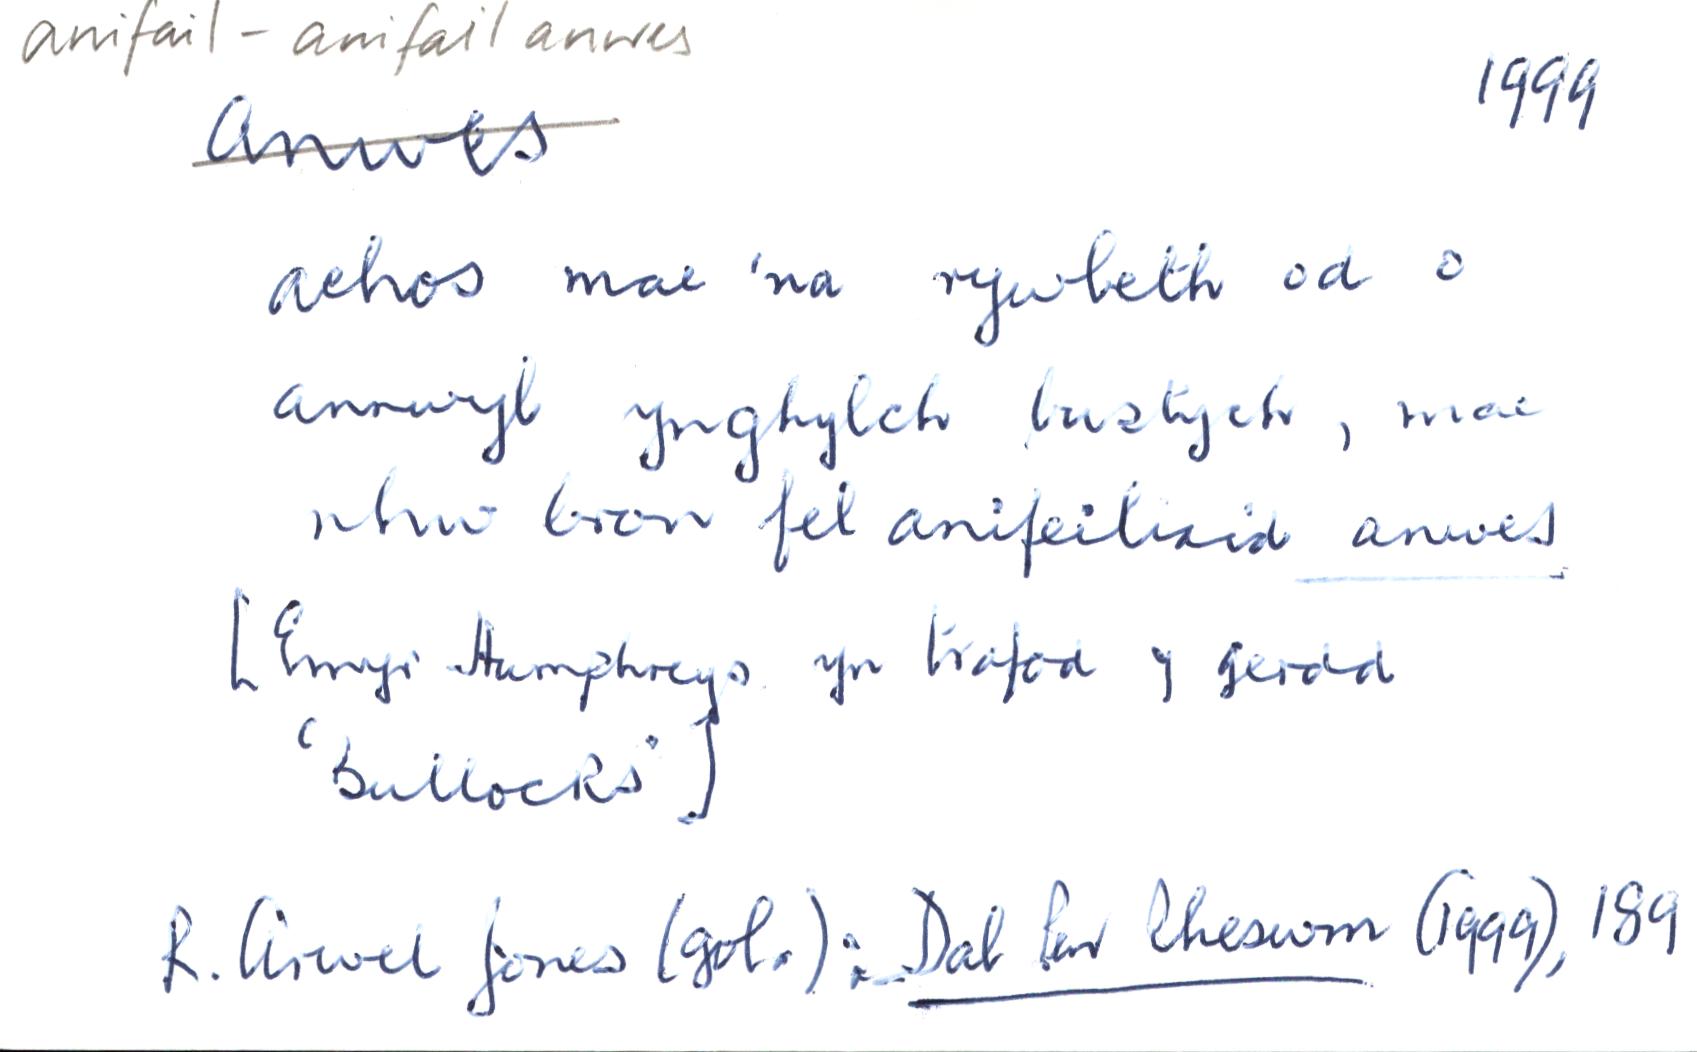 anifail - anifail anwes
1999
Anwes
achos mae 'na rywbeth od o
annwyl ynghylch bustych, mae
nhw bron fel anifeiliaid anwes
[Emyr Humphreys yn trafod y gerdd
'Bullocks']
R. Arwel Jones (gol.):- Dal Pen Rheswm (1999), 189